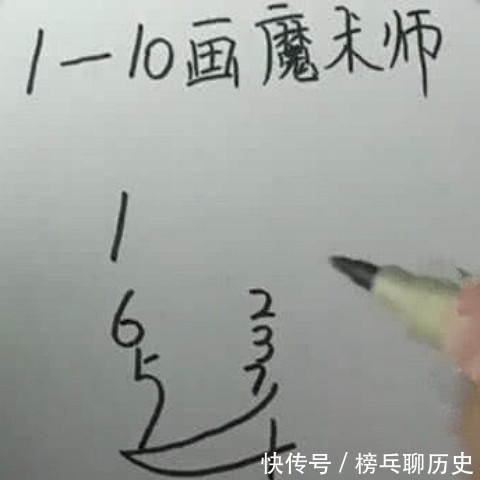 1—10画魔术师
1
6 2
5 3
7
快传号/榜乓聊历史